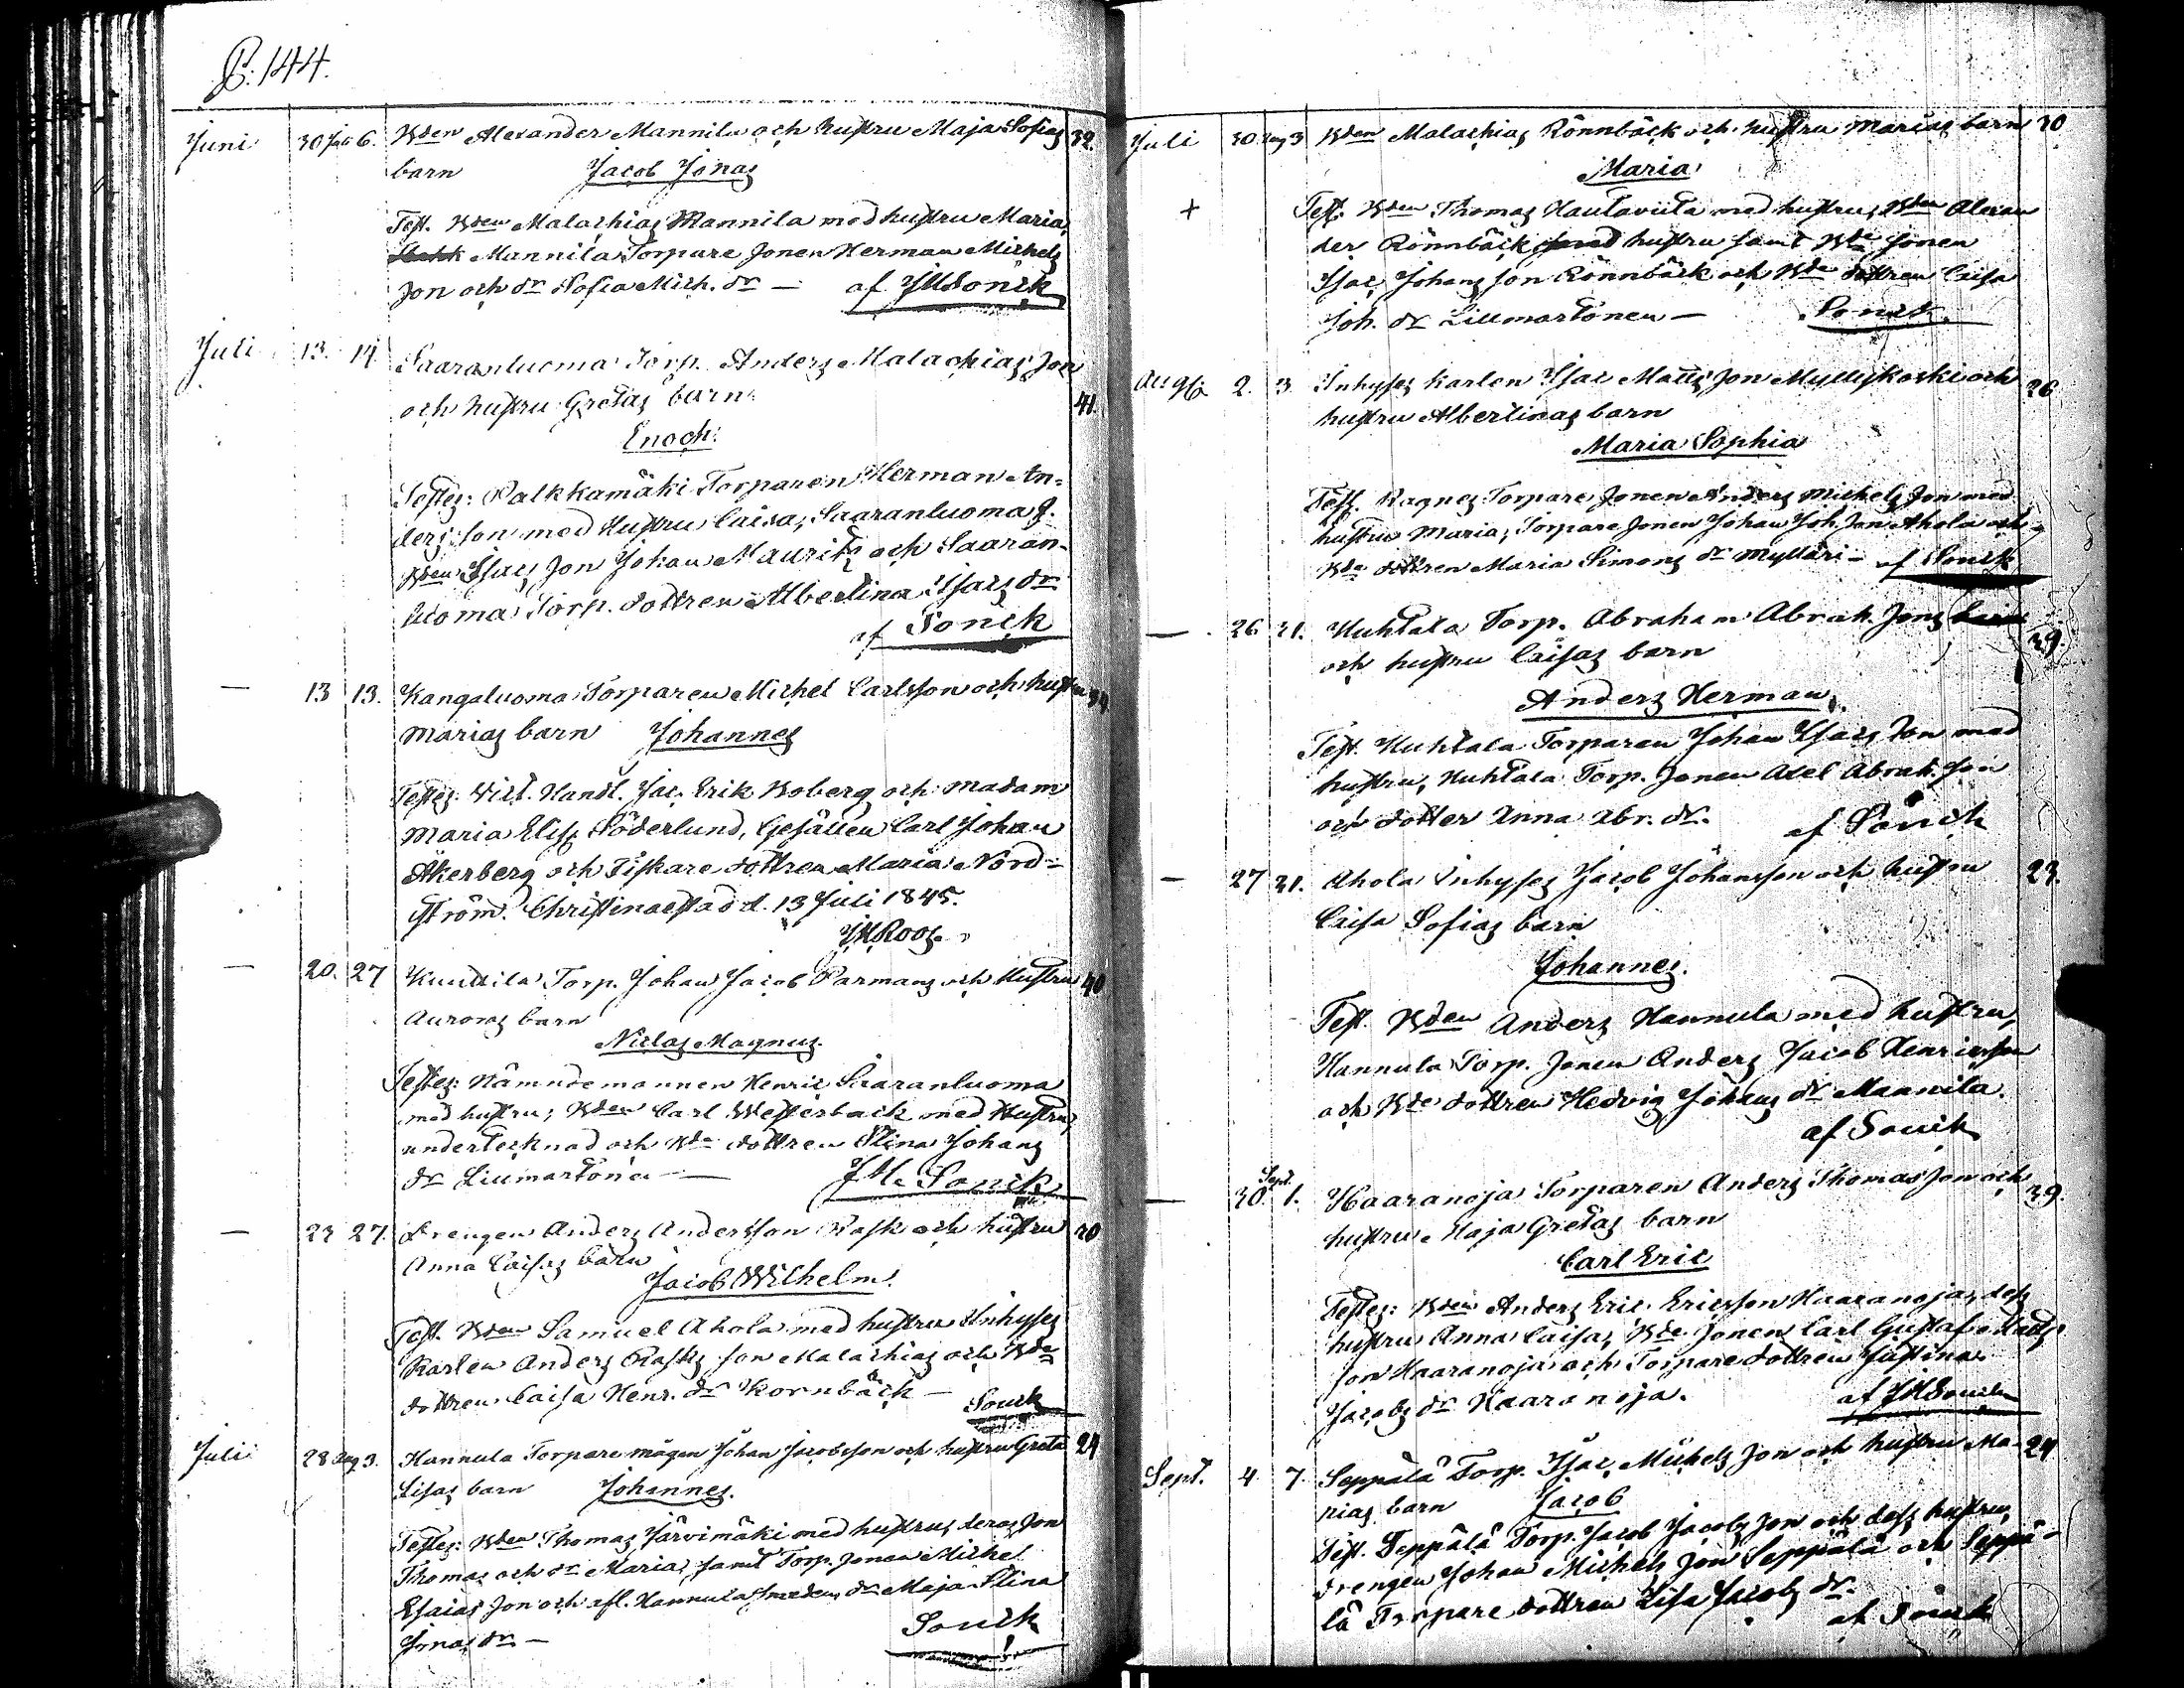 P. 144.
Juni 30 Juli 6. Bden Alexander Mannila och hustru Maja Sofias 32.
barn Jacob Jonas
Test. Bden Malachias Mannila med hustru Maria,
Mannila Torpare sonen Herman Michels
son och dr Sofia Mich. dr — af JMSonck
Juli 13. 14. Saaranluoma Torp. Anders Malachias son
och hustru Gretas barn 41.
Enoch.
Testes: Palkkamäki Torparen Herman An-
ders son med Hustru Caisa, Saaranluoma J.
Bden Isacs son Johan Maurits och Saaran-
luoma Torp. dottren Albertina Isacs dr
af Sonck
— 13 13. Kangaluoma Torparen Michel Carlsson och hustru
Marias barn Johannes
Testes: Vict. Handl. Jac. Erik Boberg och Madam
Maria Elis. Söderlund, Gesällen Carl Johan
Åkerberg och Fiskare dottren Maria Nord-
ström. Christinaestad d. 13 Juli 1845.
JMRoos
— 20. 27 Kuuttila Torp. Johan Jacob Parmans och Hustru 40
Auroras barn
Niclas Magnus.
Testes: Nämndemannen Henric Saaranluoma
med hustru; Bden Carl Westerback med Hustru,
undertecknad och Bde dottren Stina Johans
dr Lillmårtönen — JM. Sonck
— 23 27. Drengen Anders Andersson Rask och hustru 30
Anna Caisas barn
Jacob Wilhelm.
Test. Bden Samuel Ahola med hustru Inhyses
Karlen Anders Rasks son Malachias och Bde
dottren Caisa Henr. dr Kornbäck — Sonck
Juli 28 Aug 3. Hannula Torpare mågen Johan Jacobsson och hustru Greta 24
Lisas barn Johannes.
Testes: Bden Thomas Järvimäki med hustru, deras son
Thomas och dr Maria, samt Torp. sonen Michel
Esaias son och afl. Hannula Smedens dr Maja Stina
Jonas dr — Sonck
Juli 30 Aug 3 Bden Malachias Rönnbäck och hustru Marias barn 30
Maria
+ Test. Bden Thomas Hautaviita med hustru, Bden Alexan
der Rönnbäck med hustru samt Bde sonen
Isac Johans son Rönnbäck och Bde dottren Caisa
Joh. dr Lillmårtönen — Sonck.
Aug. 2. 3. Inhyses karlen Isac Matts son Myllykoski och 26
hustru Albertinas barn
Maria Sophia
Test. Ragnes Torpare sonen Anders Michels son med
hustru Maria, Torpare sonen Johan Joh. son Ahola och
Bde dottren Maria Simons dr Mylläri — af Sonck
— 26 31. Huhtala Torp. Abraham Abrah. sons
och hustru Caisas barn 39.
Anders Herman.
Test. Huhtala Torparen Johan Isacs son med
hustru, Huhtala Torp. sonen Axel Abrah. son
och dotter Anna Abr. dr. af Sonck
— 27 31. Ahola Inhyses Jacob Johansson och hustru 23.
Caisa Sofias barn
Johannes.
Test. Bden Anders Hannula med hustru,
Hannula Torp. sonen Anders Jacob Henricsson
och Bde dottren Hedvig Johans dr Mannila.
af Sonck
— 30. Sept. 1. Haaranoja Torparen Anders Thomas son och 39.
hustru Maja Gretas barn
Carl Eric
Testes: Bden Anders Eric Ericsson Haaranoja, dess
hustru Anna Caisa, Bde sonen Carl Gustaf Matts
son Haaranoja och Torpare dottren Justina
Jacobs dr Haaranoja. af JMSonck
Sept. 4. 7. Seppälä Torp. Isac Michels son och hustru Ma- 24
rias barn Jacob
Test. Seppälä Torp. Jacob Jacobs son och dess hustru,
drengen Johan Michels son Seppälä och Seppä-
lä Torpare dottren Lisa Jacobs dr.
af Sonck